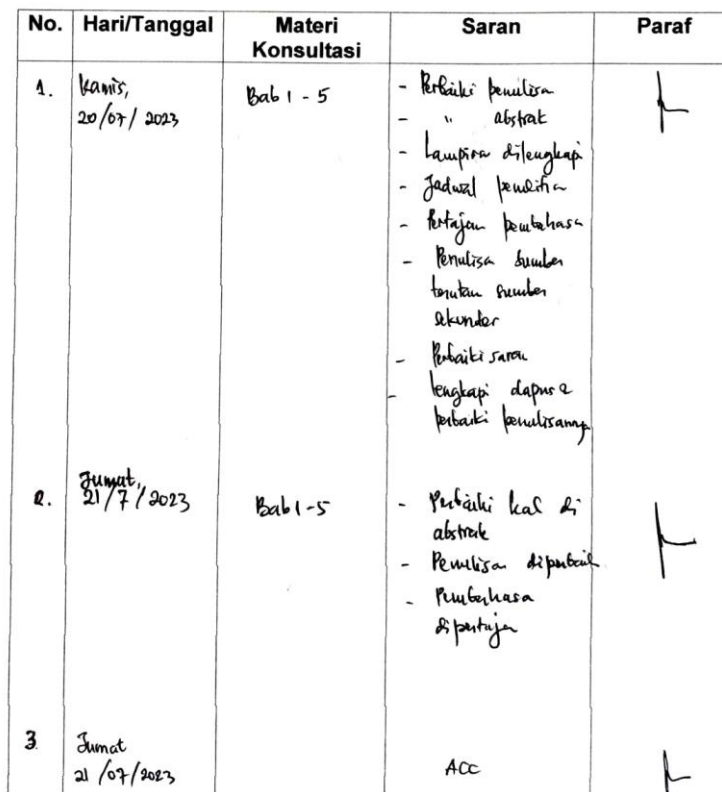 No. Hari/Tanggal Materi Konsultasi Saran Paraf
1. Kamis, Bab 1 - 5 - Perbaiki penulisan
20/07/2023 - " abstrak
- Lampiran dilengkapi
- Jadwal penelitian
- Pertajam pembahasan
- Penulisan sumber
terutama sumber
sekunder
- Perbaiki saran
- lengkapi dapus &
perbaiki penulisannya
2. Jumat,
21/7/2023 Bab 1-5 - Perbaiki kal di
abstrak
- Penulisan diperbaiki
- Pembahasan
dipertajam
3. Jumat
21/07/2023 ACC